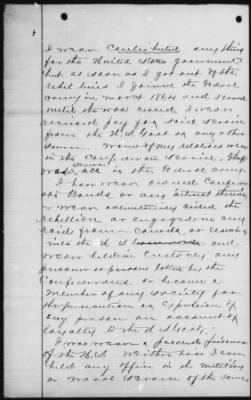 I never Contributed any thing
for the United States government
but as soon as I got out of the
rebel lines I joined the Federal
army in march 1864 and served
until the war I never
received pay for said service
from the U.S. Govt or any other
None of my relatives were
in the Confederate Service. They
were all in the Federal army.
I have never owned Confederate
Bonds or any interest therein
or never aided the
rebellion or engaged in any
raid from Canada, or
into the U.S. and
never held in Custody any
prisoner or persons taken by the
Confederates or became a
Member of any Society for
the persecution or expulsion of
any person on account of
loyalty to the U S Govt.
I was never a paroled prisoner
of the U.S. Neither have I ever
held any office in the military
or naval Service of the same